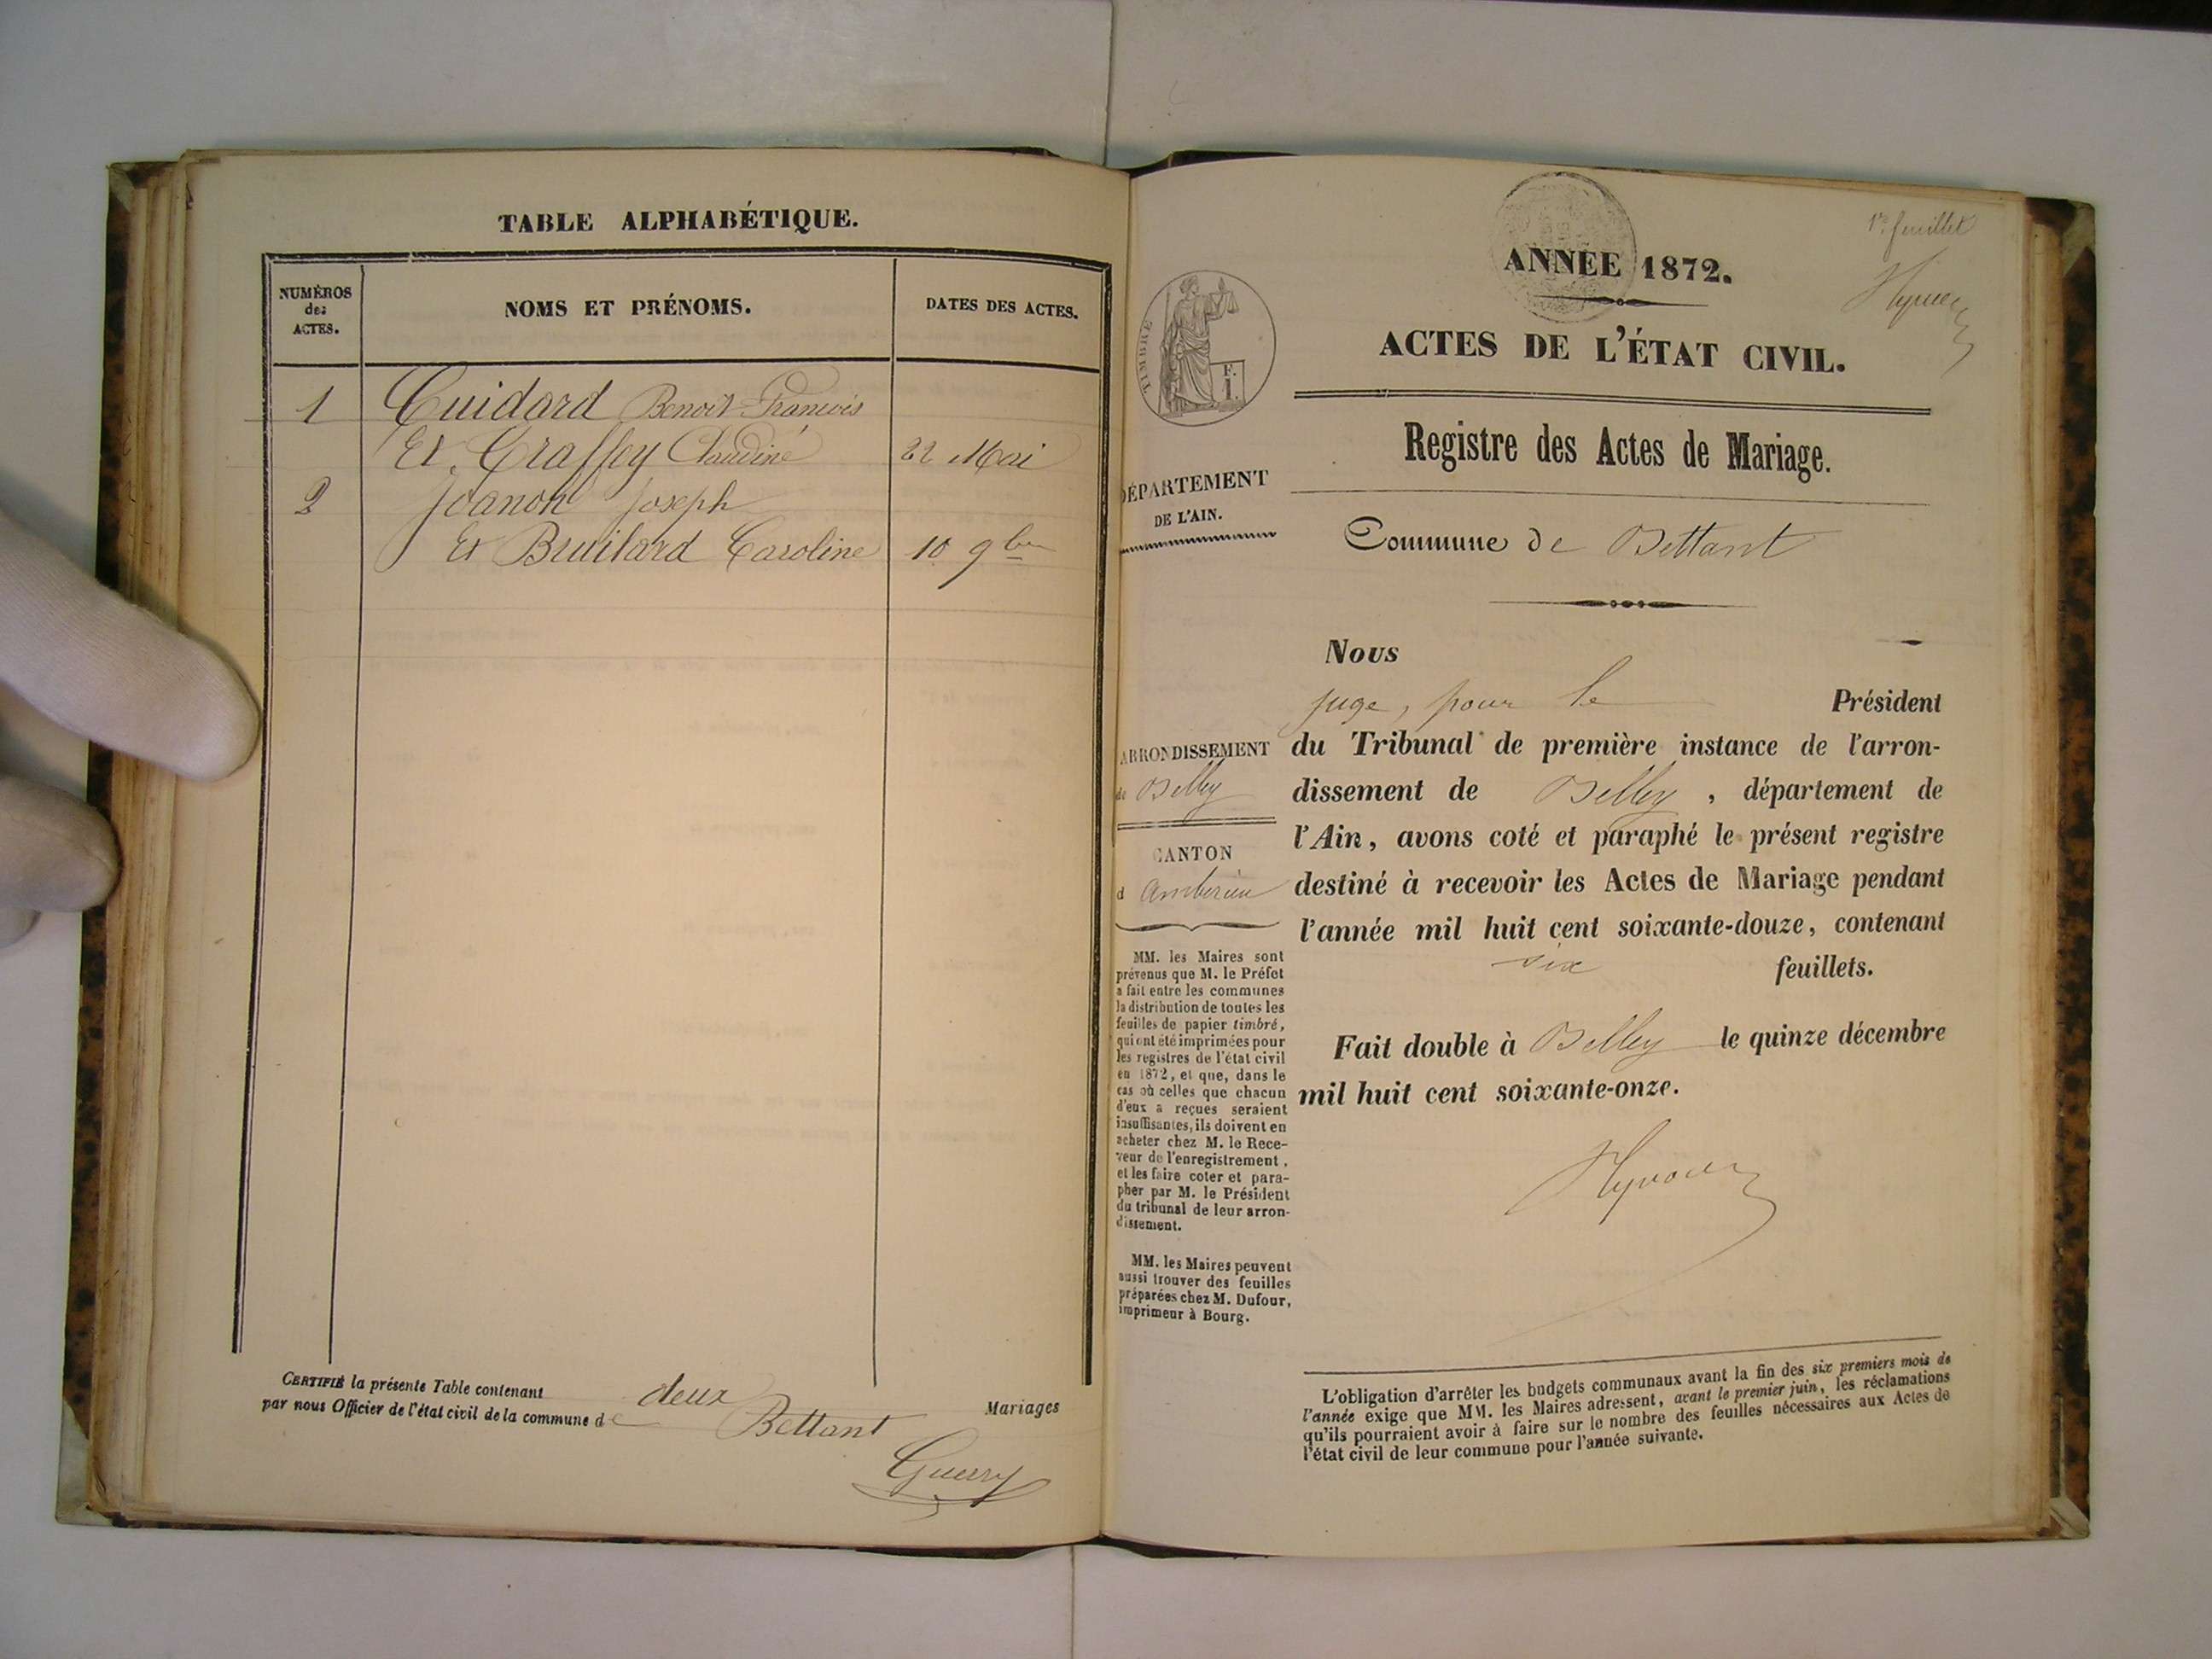 TABLE ALPHABÉTIQUE.
NUMÉROS
des
ACTES.
NOMS ET PRÉNOMS.
DATES DES ACTES.
1 Cuidard Benoit François
Et Craffey Claudine 22 Mai
2 Joanon Joseph
Et Bruilard Caroline 10 9bre
CERTIFIÉ la présente Table contenant deux Mariages
par nous Officier de l'état civil de la commune de Bettant
Guerry
1er feuillet
ANNÉE 1872.
ACTES DE L'ÉTAT CIVIL.
Registre des Actes de Mariage.
Commune de Bettant
TIMBRE
F.
1.
DÉPARTEMENT
DE L'AIN.
ARRONDISSEMENT
de Belley
CANTON
d Ambérieu
MM. les Maires sont
prévenus que M. le Préfet
a fait entre les communes
la distribution de toutes les
feuilles de papier timbré,
qui ont été imprimées pour
les registres de l'état civil
en 1872, et que, dans le
cas où celles que chacun
d'eux a reçues seraient
insuffisantes, ils doivent en
acheter chez M. le Rece-
veur de l'enregistrement,
et les faire coter et para-
pher par M. le Président
du tribunal de leur arron-
dissement.
MM. les Maires peuvent
aussi trouver des feuilles
préparées chez M. Dufour,
imprimeur à Bourg.
Nous
juge, pour le Président
du Tribunal de première instance de l'arron-
dissement de Belley, département de
l'Ain, avons coté et paraphé le présent registre
destiné à recevoir les Actes de Mariage pendant
l'année mil huit cent soixante-douze, contenant
six feuillets.
Fait double à Belley le quinze décembre
mil huit cent soixante-onze.
L'obligation d'arrêter les budgets communaux avant la fin des six premiers mois de
l'année exige que MM. les Maires adressent, avant le premier juin, les réclamations
qu'ils pourraient avoir à faire sur le nombre des feuilles nécessaires aux Actes de
l'état civil de leur commune pour l'année suivante.